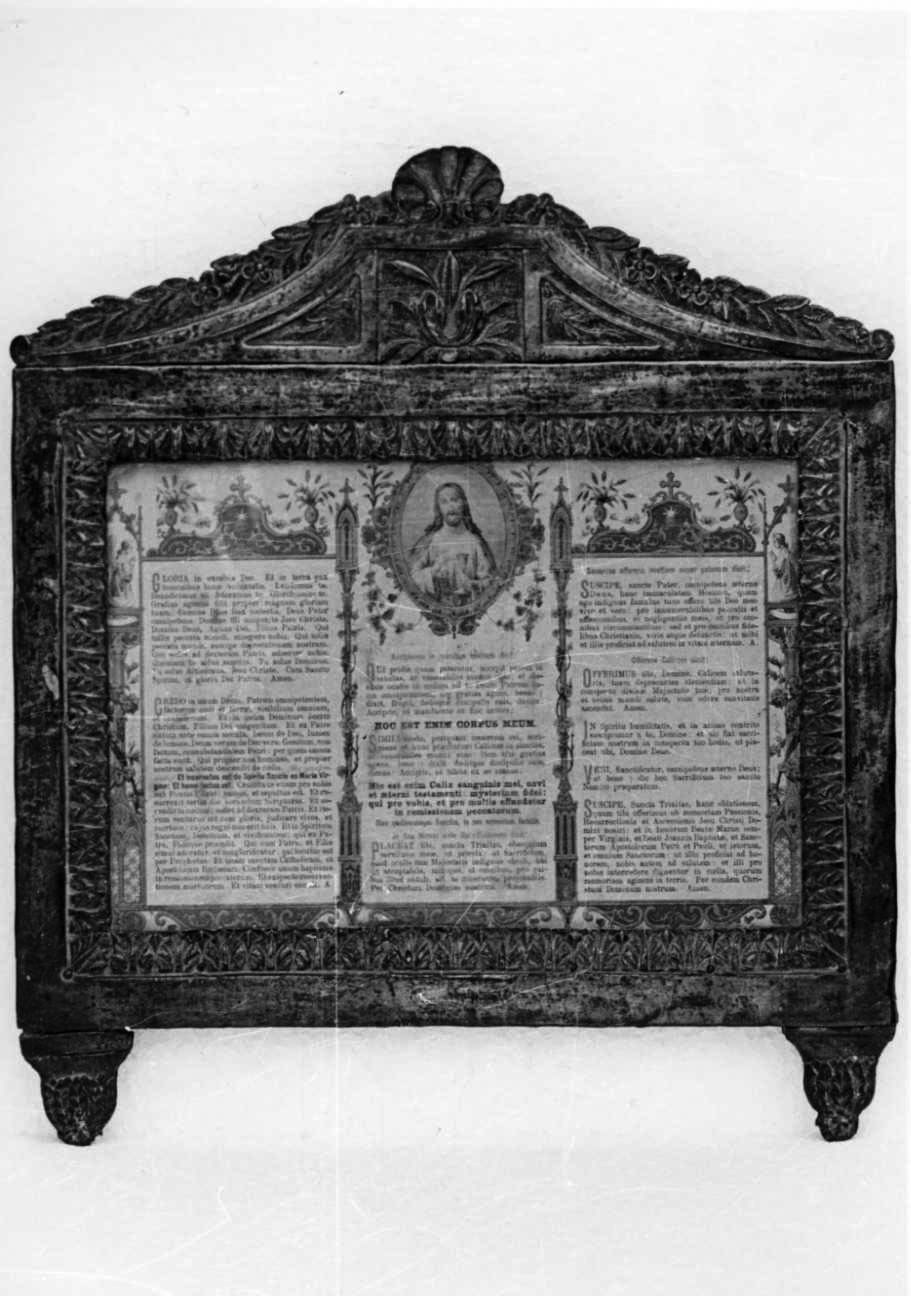 GLORIA in excelsis Deo. Et in terra pax
hominibus bonæ voluntatis. Laudamus te.
Benedicimus te. Adoramus te. Glorificamus te.
Gratias agimus tibi propter magnam gloriam
tuam. Domine Deus, Rex cœlestis, Deus Pater
omnipotens. Domine Fili unigenite Jesu Christe.
Domine Deus, Agnus Dei, Filius Patris. Qui
tollis peccata mundi, miserere nobis. Qui tollis
peccata mundi, suscipe deprecationem nostram.
Qui sedes ad dexteram Patris, miserere nobis.
Quoniam tu solus sanctus. Tu solus Dominus.
Tu solus Altissimus, Jesu Christe. Cum Sancto
Spiritu, in gloria Dei Patris. Amen.
CREDO in unum Deum, Patrem omnipotentem,
factorem cœli et terræ, visibilium omnium,
et invisibilium. Et in unum Dominum Jesum
Christum, Filium Dei unigenitum. Et ex Patre
natum ante omnia sæcula. Deum de Deo, lumen
de lumine, Deum verum de Deo vero. Genitum, non
factum, consubstantialem Patri: per quem omnia
facta sunt. Qui propter nos homines, et propter
nostram salutem descendit de cœlis.
Et incarnatus est de Spiritu Sancto ex Maria Vir-
gine: Et homo factus est. Crucifixus etiam pro nobis
sub Pontio Pilato: passus, et sepultus est. Et re-
surrexit tertia die, secundum Scripturas. Et as-
cendit in cœlum: sedet ad dexteram Patris. Et ite-
rum venturus est cum gloria, judicare vivos, et
mortuos: cujus regni non erit finis. Et in Spiritum
Sanctum, Dominum, et vivificantem: qui ex Pa-
tre, Filioque procedit. Qui cum Patre, et Filio
simul adoratur, et conglorificatur: qui locutus est
per Prophetas. Et unam sanctam Catholicam, et
Apostolicam Ecclesiam. Confiteor unum baptisma
in remissionem peccatorum. Et expecto resurrec-
tionem mortuorum. Et vitam venturi sæculi. A.
QUI pridie quam pateretur, accepit panem in
HOC EST ENIM CORPUS MEUM.
SIMILI modo, postquam cœnatum est, acci-
piens et hunc præclarum Calicem in sanctas,
Hic est enim Calix sanguinis mei, novi
et æterni testamenti: mysterium fidei:
qui pro vobis, et pro multis effundetur
in remissionem peccatorum.
Hæc quotiescumque feceritis, in mei memoriam facietis.
PLACEAT tibi, sancta Trinitas, obsequium
servitutis meæ, et præsta: ut sacrificium,
quod oculis tuæ Majestatis indignus obtuli, tibi
sit acceptabile, mihique, et omnibus, pro qui-
bus illud obtuli, sit, te miserante, propitiabile.
Per Christum Dominum nostrum. Amen.
SUSCIPE, sancte Pater, omnipotens æterne
Deus, hanc immaculatam Hostiam, quam
ego indignus famulus tuus offero tibi Deo meo
vivo et vero: pro innumerabilibus peccatis et
offensionibus, et negligentiis meis, et pro om-
nibus circumstantibus: sed et pro omnibus fide-
libus Christianis, vivis atque defunctis: ut mihi
et illis proficiat ad salutem in vitam æternam. A.
Offerens Calicem dicit:
OFFERIMUS tibi, Domine, Calicem saluta-
ris, tuam deprecantes clementiam: ut in
conspectu divinæ Majestatis tuæ, pro nostra
et totius mundi salute, cum odore suavitatis
ascendat. Amen.
IN Spiritu humilitatis, et in animo contrito
suscipiamur a te, Domine: et sic fiat sacri-
ficium nostrum in conspectu tuo hodie, ut pla-
ceat tibi, Domine Deus.
VENI, Sanctificator, omnipotens æterne Deus;
et bene ✝ dic hoc Sacrificium tuo sancto
Nomini præparatum.
SUSCIPE, Sancta Trinitas, hanc oblationem,
quam tibi offerimus ob memoriam Passionis,
Resurrectionis et Ascensionis Jesu Christi Do-
mini nostri: et in honorem Beatæ Mariæ sem-
per Virginis, et beati Joannis Baptistæ, et Sanc-
torum Apostolorum Petri et Pauli, et istorum,
et omnium Sanctorum: ut illis proficiat ad ho-
norem, nobis autem ad salutem: et illi pro
nobis intercedere dignentur in cœlis, quorum
memoriam agimus in terris. Per eundem Chri-
stum Dominum nostrum. Amen.